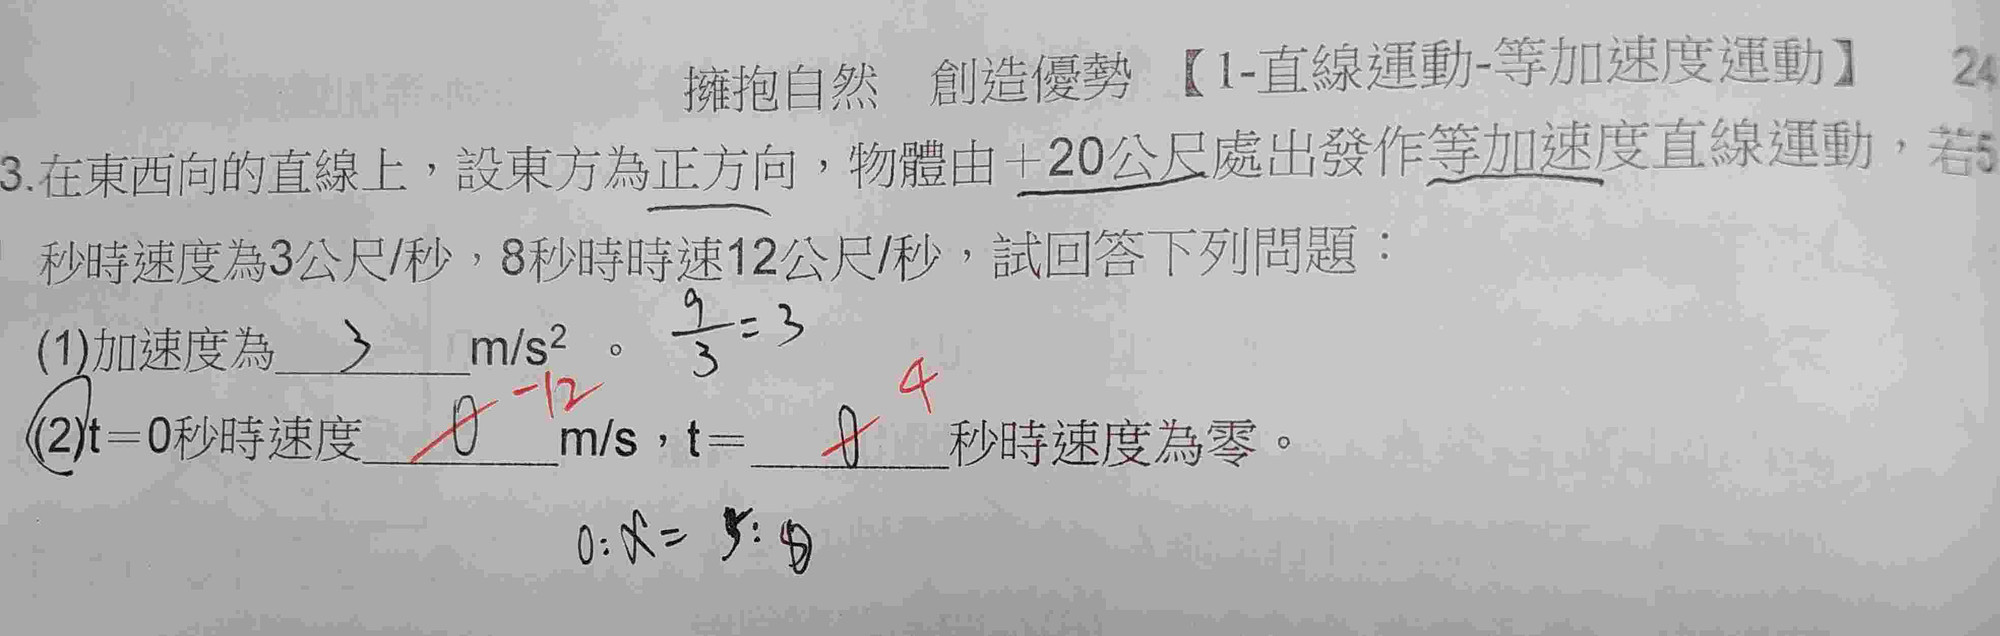 擁抱自然 創造優勢 【1-直線運動-等加速度運動】 24
3.在東西向的直線上,設東方為正方向,物體由+20公尺處出發作等加速度直線運動,若5
秒時速度為3公尺/秒,8秒時時速12公尺/秒,試回答下列問題:
(1)加速度為 3 m/s²。 9/3=3
(2)t=0秒時速度 0 -12 m/s,t= 0 4 秒時速度為零。
0:x= 5:8